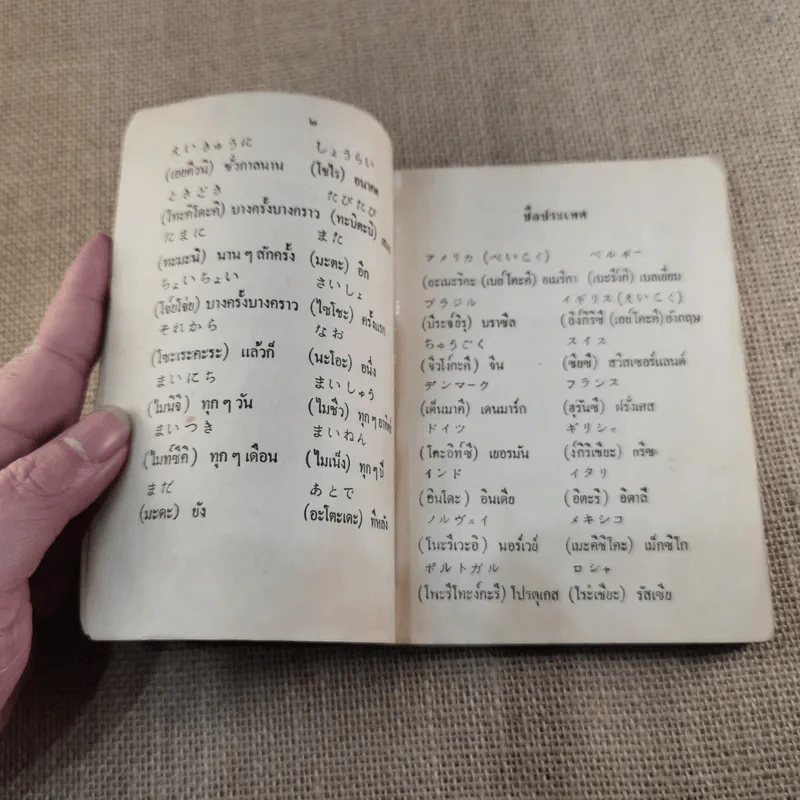 ๒
えいきゅうに しょうらい
(เอยคิวนิ) ชั่วกาลนาน (โชไร) อนาคต
ときどき たびたび
(โทะคิโดะคิ) บางครั้งบางคราว (ทะบิตะบิ)
たまに また
(ทะมะนิ) นาน ๆ สักครั้ง (มะตะ) อีก
ちょいちょい さいしょ
(โจ๋ยโจ๋ย) บางครั้งบางคราว (ไซโชะ) ครั้งแรก
それから なお
(โซะเระคะระ) แล้วก็ (นะโอะ) อนึ่ง
まいにち まいしゅう
(ไมนิจิ) ทุก ๆ วัน (ไมชิว) ทุก ๆ อาทิตย์
まいつき まいねん
(ไมท์ซึคิ) ทุก ๆ เดือน (ไมเน็ง) ทุก ๆ ปี
まだ あとで
(มะดะ) ยัง (อะโตะเดะ) ทีหลัง
ชื่อประเทศ
アメリカ (べいこく) ベルギー
(อะเมะริกะ (เบย์โคะคิ) อเมริกา (เบะรึงคิ) เบลเยี่ยม
ブラジル イギリス (えいこく)
(บึระจิรุ) บราซิล (อิงกิริซึ (เอย์โคะคิ) อังกฤษ
ちゅうごく スイス
(จิวโง่กะคึ) จีน (ซึยซึ) สวิสเซอร์แลนด์
デンマーク フランス
(เด็นมาคึ) เดนมาร์ก (ฮุรันซึ) ฝรั่งเศส
ドイツ ギリシャ
(โดะอิท์ซึ) เยอรมัน (ง์กิริเชียะ) กรีซ
インド イタリ
(อินโดะ) อินเดีย (อิตะริ) อิตาลี
ノルヴェイ メキシコ
(โนะรึเวะอิ) นอร์เวย์ (เมะคิชิโคะ) เม็กซิโก
ポルトガル ロシャ
(โพะรึโทะง์กะรึ) โปรตุเกส (โร่ะเชียะ) รัสเซีย